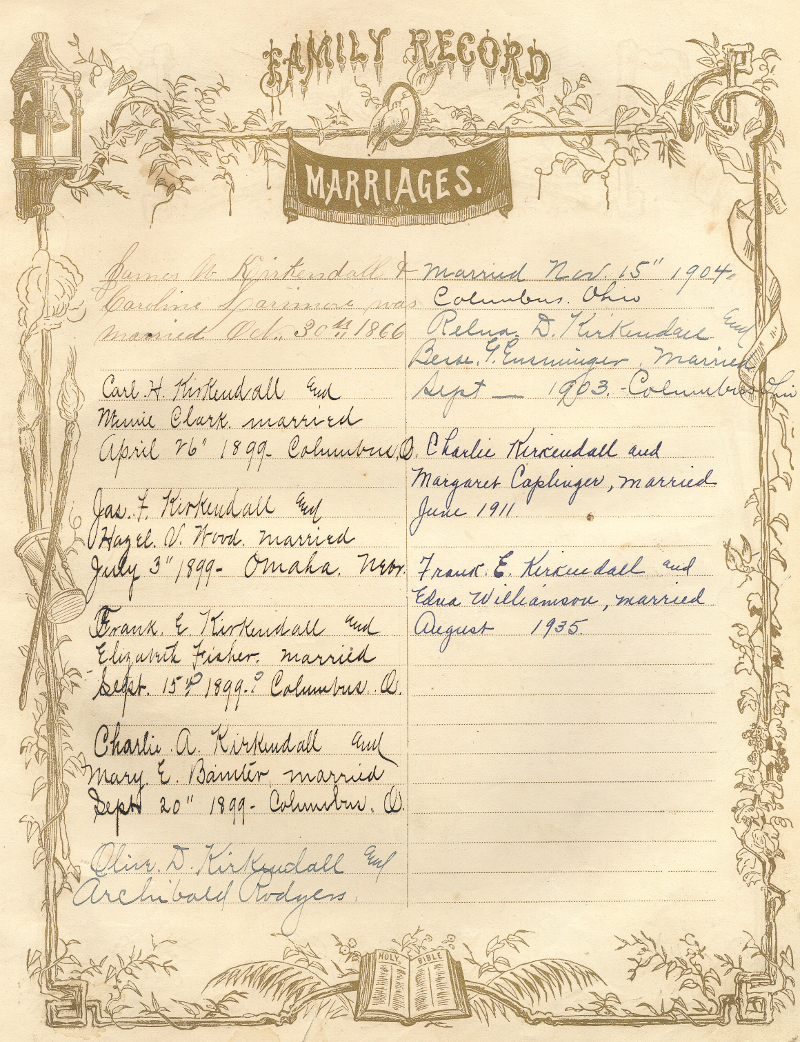 FAMILY RECORD
MARRIAGES.
James W Kirkendall &
Caroline Larimore was
married Oct. 30th, 1866
Carl. H. Kirkendall and
Minnie Clark. married
April 26" 1899- Columbus, O.
Jas. F. Kirkendall and
Hazel. V. Wood. married
July 3" 1899- Omaha. Nebr.
Frank. E. Kirkendall and
Elizabeth Fisher. married
Sept. 15th 1899-? Columbus. O.
Charlie. A. Kirkendall and
Mary. E. Bainter, married
Sept 20" 1899- Columbus. O.
Olive. D. Kirkendall and
Archibald Rodgers
Married Nov. 15" 1904.
Columbus. Ohio
Relna. D. Kirkendall and
Besse. G. Ensminger. Married
Sept — 1903.-Columbus Ohio
Charlie Kirkendall and
Margaret Caplinger, married
June 1911
Frank. E. Kirkendall and
Edna Williamson, married
August 1935.
HOLY BIBLE